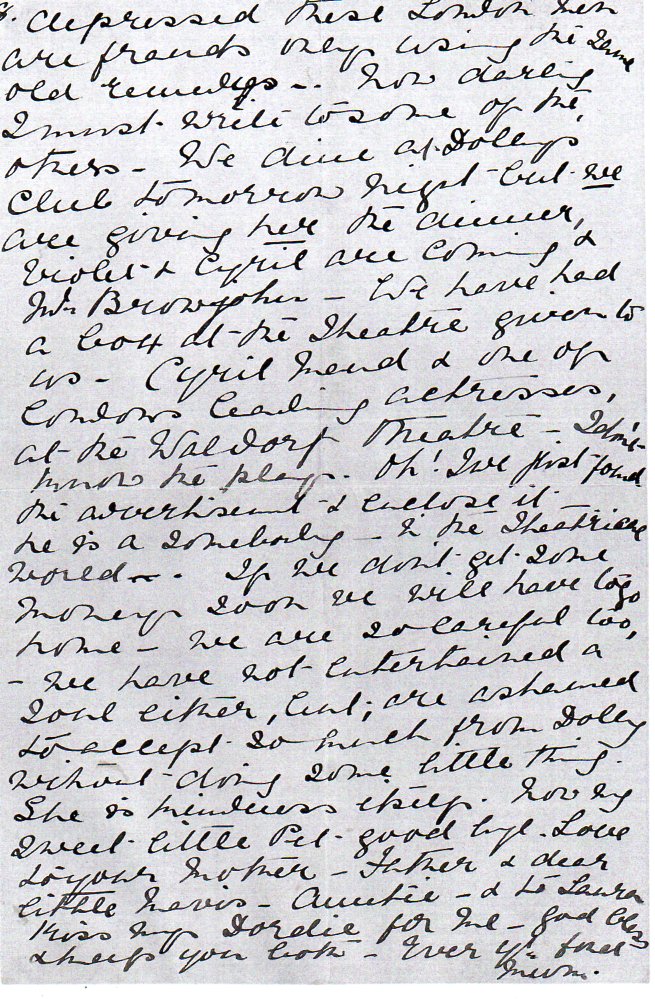 depressed these London men
are frauds only using the same
old remedys -. Now darling
I must write to some of the
others - We dine at Dollys
Club tomorrow night - but we
are giving her the dinner,
Violet & Cyril are coming &
Mr Brownjohn - We have had
a box at the Theatre given to
us - Cyril Maud & one of
Londons leading actresses,
at the Waldorf Theatre - I don't
know the play. Oh! I've just found
the advertisement & enclose it
he is a somebody - in the Theatrical
world -. If we dont get some
money soon we will have to go
home - we are so careful too,
- we have not entertained a
soul either, but, are ashamed
to accept so much from Dolly
without doing some little thing.
She is kindness itself. Now my
sweet little Pet good bye. Love
to your Mother - Father & dear
little Mavis - Auntie - & to Laura
Kiss my Dordie for me - God bless
& keep you both - Ever yr. fond
Mum.